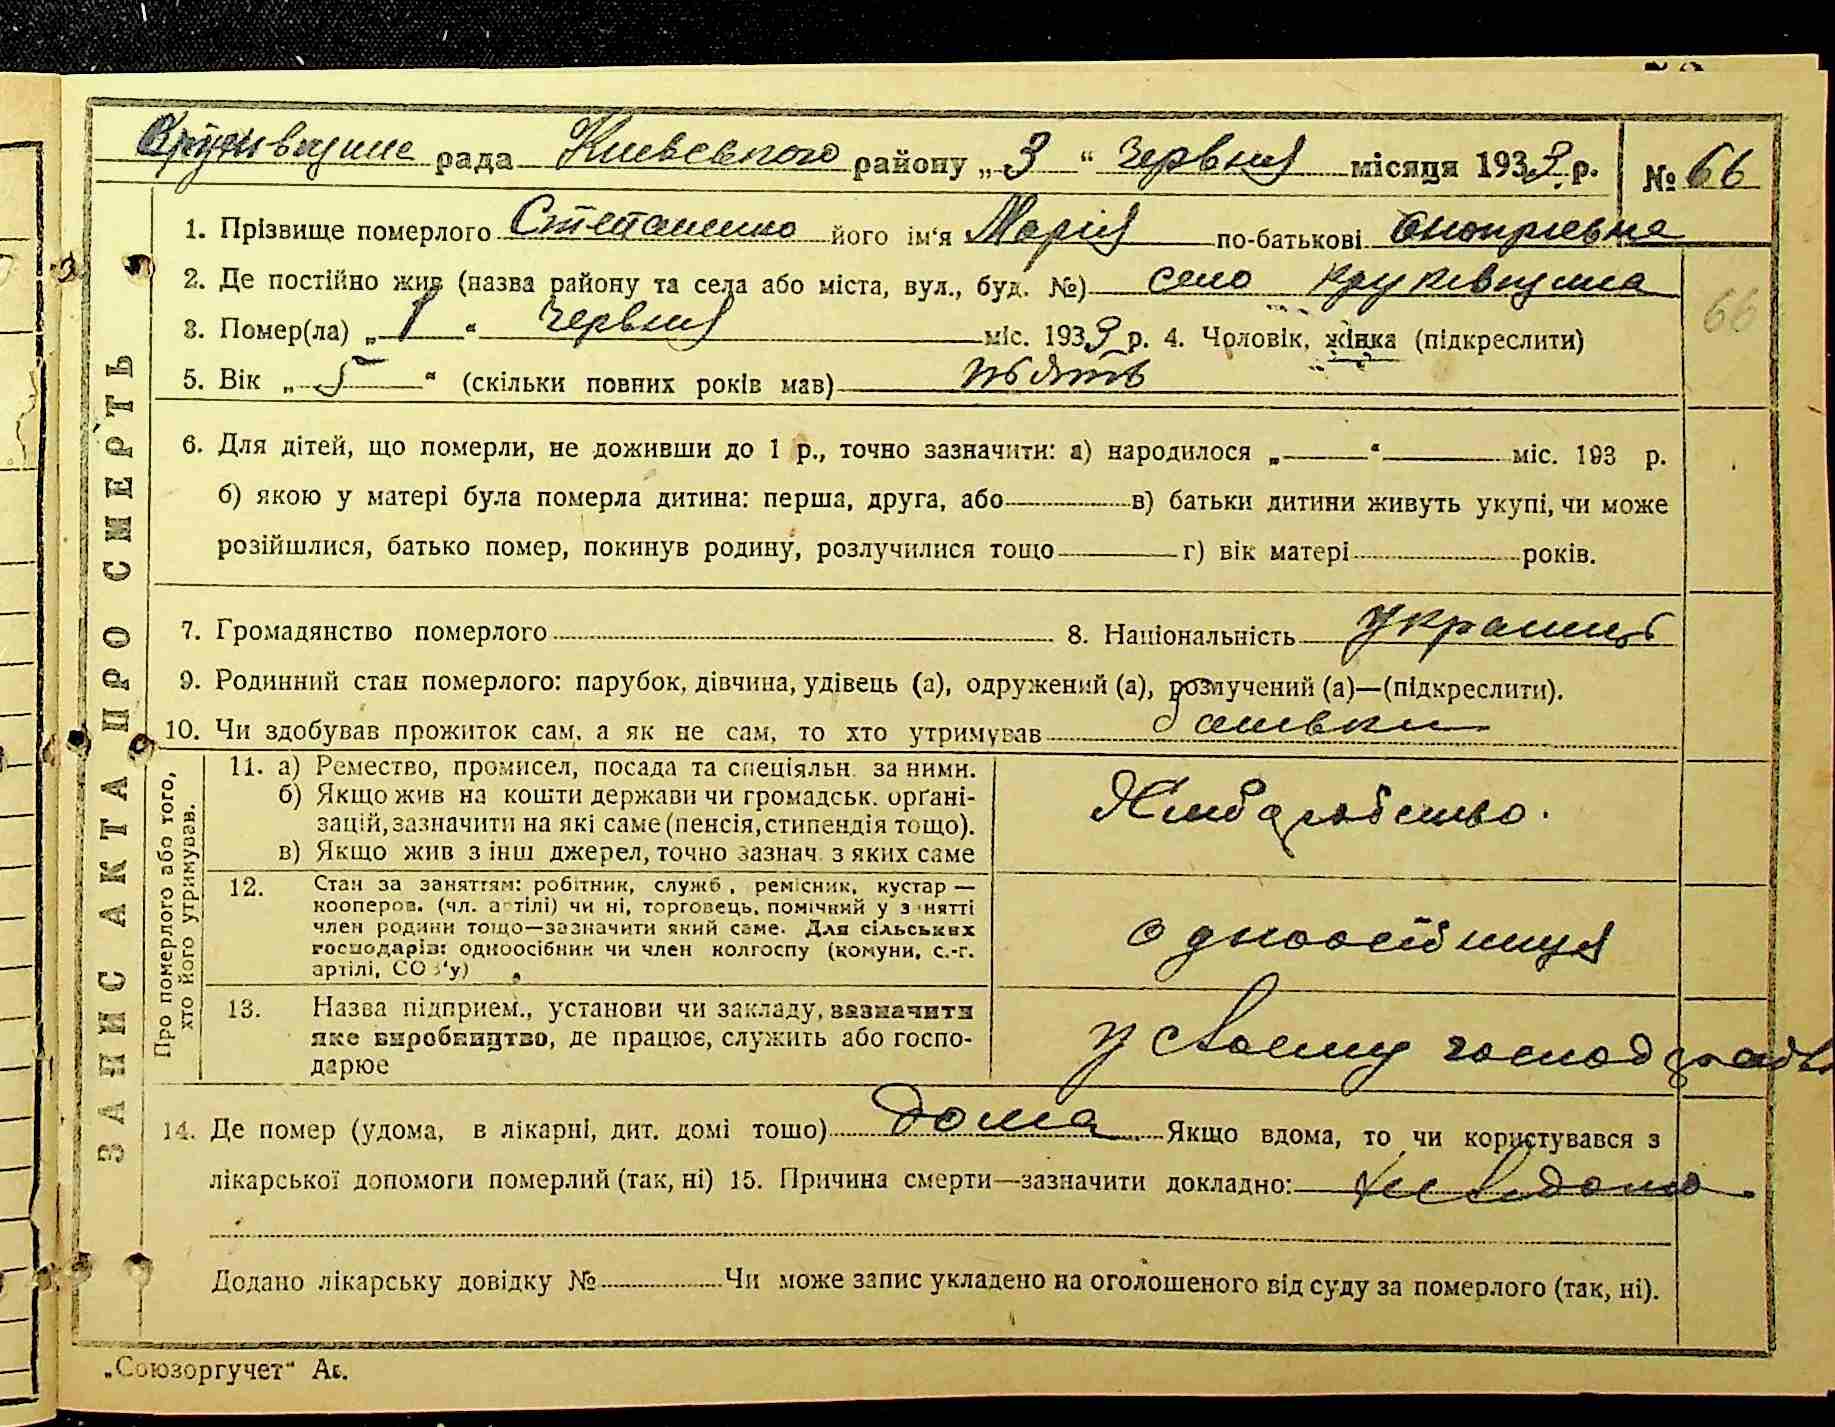 Крукивщине рада Киевського району „ 3 “ Червня місяця 1933 р. № 66
1. Прізвище померлого Степаненко його ім‘я Марія по-батькові Онопрієвна
2. Де постійно жив (назва району та села або міста, вул., буд. №) село Круківщина
66
3. Помер(ла) „ 1 “ Червня міс. 1933 р. 4. Чоловік, жінка (підкреслити)
5. Вік „ 5 “ (скільки повних років мав) пбять
6. Для дітей, що померли, не доживши до 1 р., точно зазначити: а) народилося „ “ міс. 193 р.
б) якою у матері була померла дитина: перша, друга, або в) батьки дитини живуть укупі, чи може
розійшлися, батько помер, покинув родину, розлучилися тощо г) вік матері років.
7. Громадянство померлого 8. Національність украинц
9. Родинний стан померлого: парубок, дівчина, удівець (а), одружений (а), розлучений (а)—(підкреслити).
10. Чи здобував прожиток сам, а як не сам, то хто утримував батьки
ЗАПИС АКТА ПРО СМЕРТЬ
Про померлого або того,
хто його утримував.
11. а) Ремество, промисел, посада та спеціяльн. за ними.
б) Якщо жив на кошти держави чи громадськ. орґані-
зацій, зазначити на які саме (пенсія, стипендія тощо).
в) Якщо жив з інш джерел, точно зазнач. з яких саме
Хліборобство.
12. Стан за заняттям: робітник, служб., ремісник, кустар —
кооперов. (чл. артілі) чи ні, торговець, помічний у занятті
член родини тощо—зазначити який саме. Для сільських
господарів: одноосібник чи член колгоспу (комуни, с.-г.
артілі, СОЗ‘у)
одноосібниця
13. Назва підприєм., установи чи закладу, зазначити
яке виробництво, де працює, служить або госпо-
дарює
у своему господарстві
14. Де помер (удома, в лікарні, дит. домі тощо) дома Якщо вдома, то чи користувався з
лікарської допомоги померлий (так, ні) 15. Причина смерти—зазначити докладно: невідомо
Додано лікарську довідку № Чи може запис укладено на оголошеного від суду за померлого (так, ні).
„Союзоргучет“